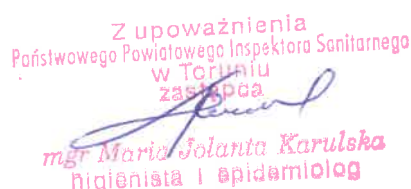 Z upoważnienia
Państwowego Powiatowego Inspektora Sanitarnego
w Toruniu
zastępca
mgr Maria Jolanta Karulska
higienista i epidemiolog